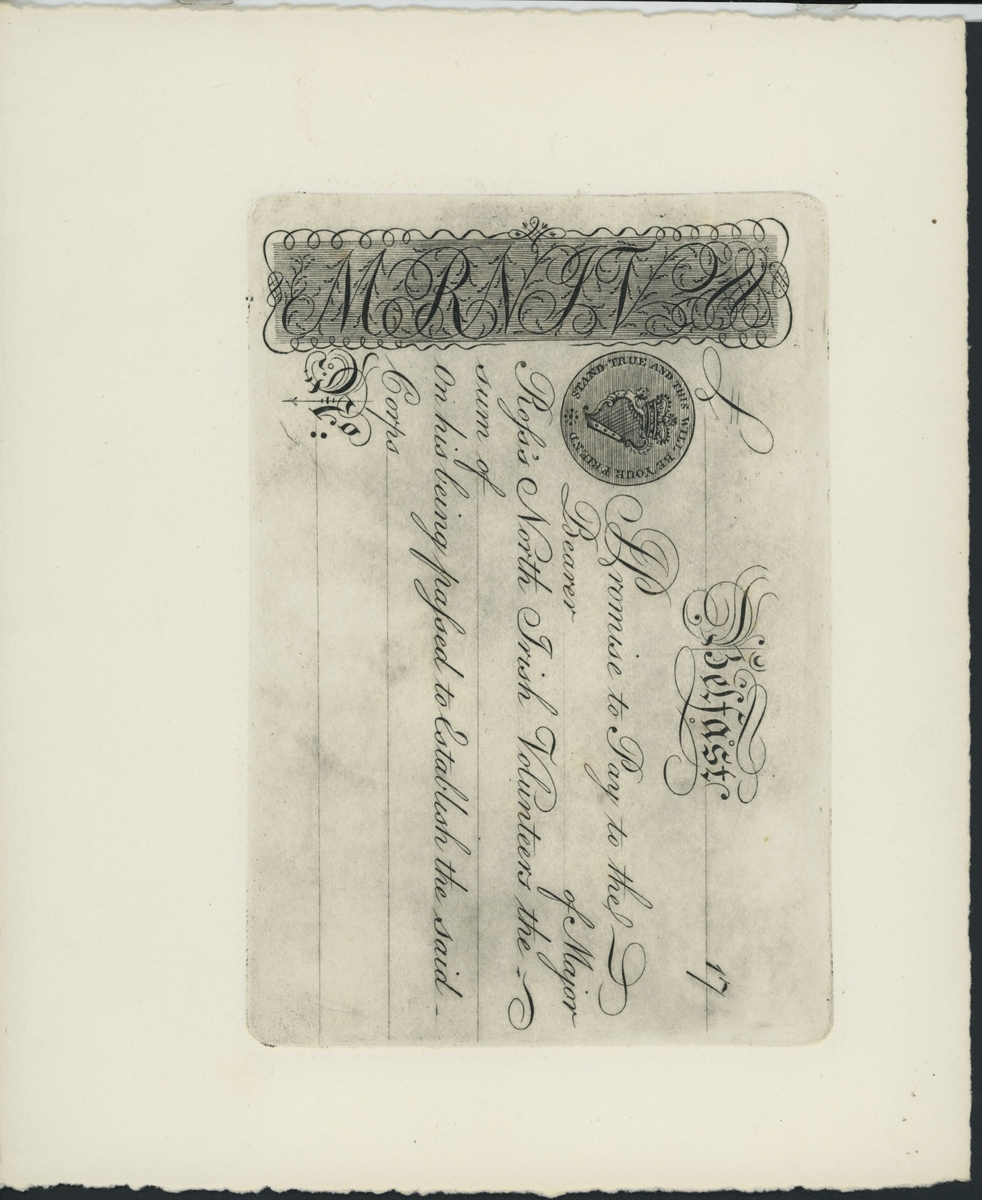 MRNIV
Belfast 17
STAND TRUE AND THIS WILL BE YOUR FRIEND
I Promise to Pay to the
Bearer of Major
Roſs's North Irish Volunteers the
sum of
On his being paſsed to Establish the said
Corps
No